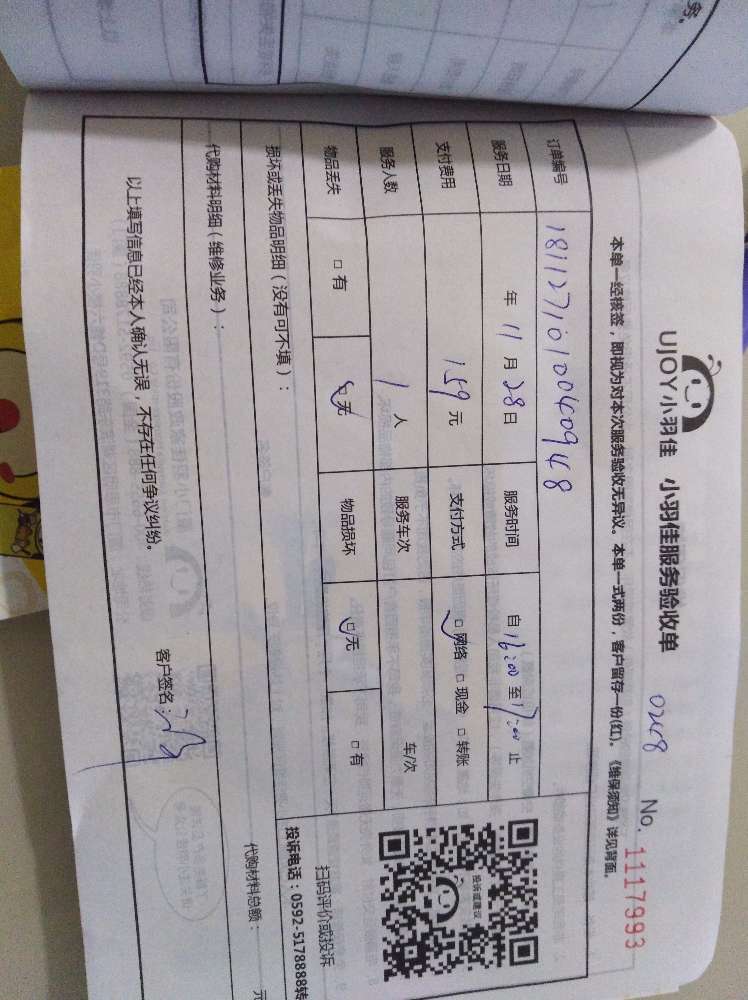 UJOY小羽佳 小羽佳服务验收单
0248 No. 1117993
本单一经核签，即视为对本次服务验收无异议。本单一式两份，客户留存一份(红)。《维保须知》详见背面。
订单编号 1811271010040948
服务日期 年 11 月 28 日 服务时间 自 16:00 至 17:00 止
支付费用 159 元 支付方式 □ 网络 □ 现金 □ 转账
服务人数 1 人 服务车次 车/次
物品丢失 □ 有 □ 无 物品损坏 □ 无 □ 有
损坏或丢失物品明细（没有可不填）：
投诉或建议
扫码评价或投诉
投诉电话：0592-5178888转
代购材料明细（维修业务）： 代购材料总额： 元
以上填写信息已经本人确认无误，不存在任何争议纠纷。 客户签名：